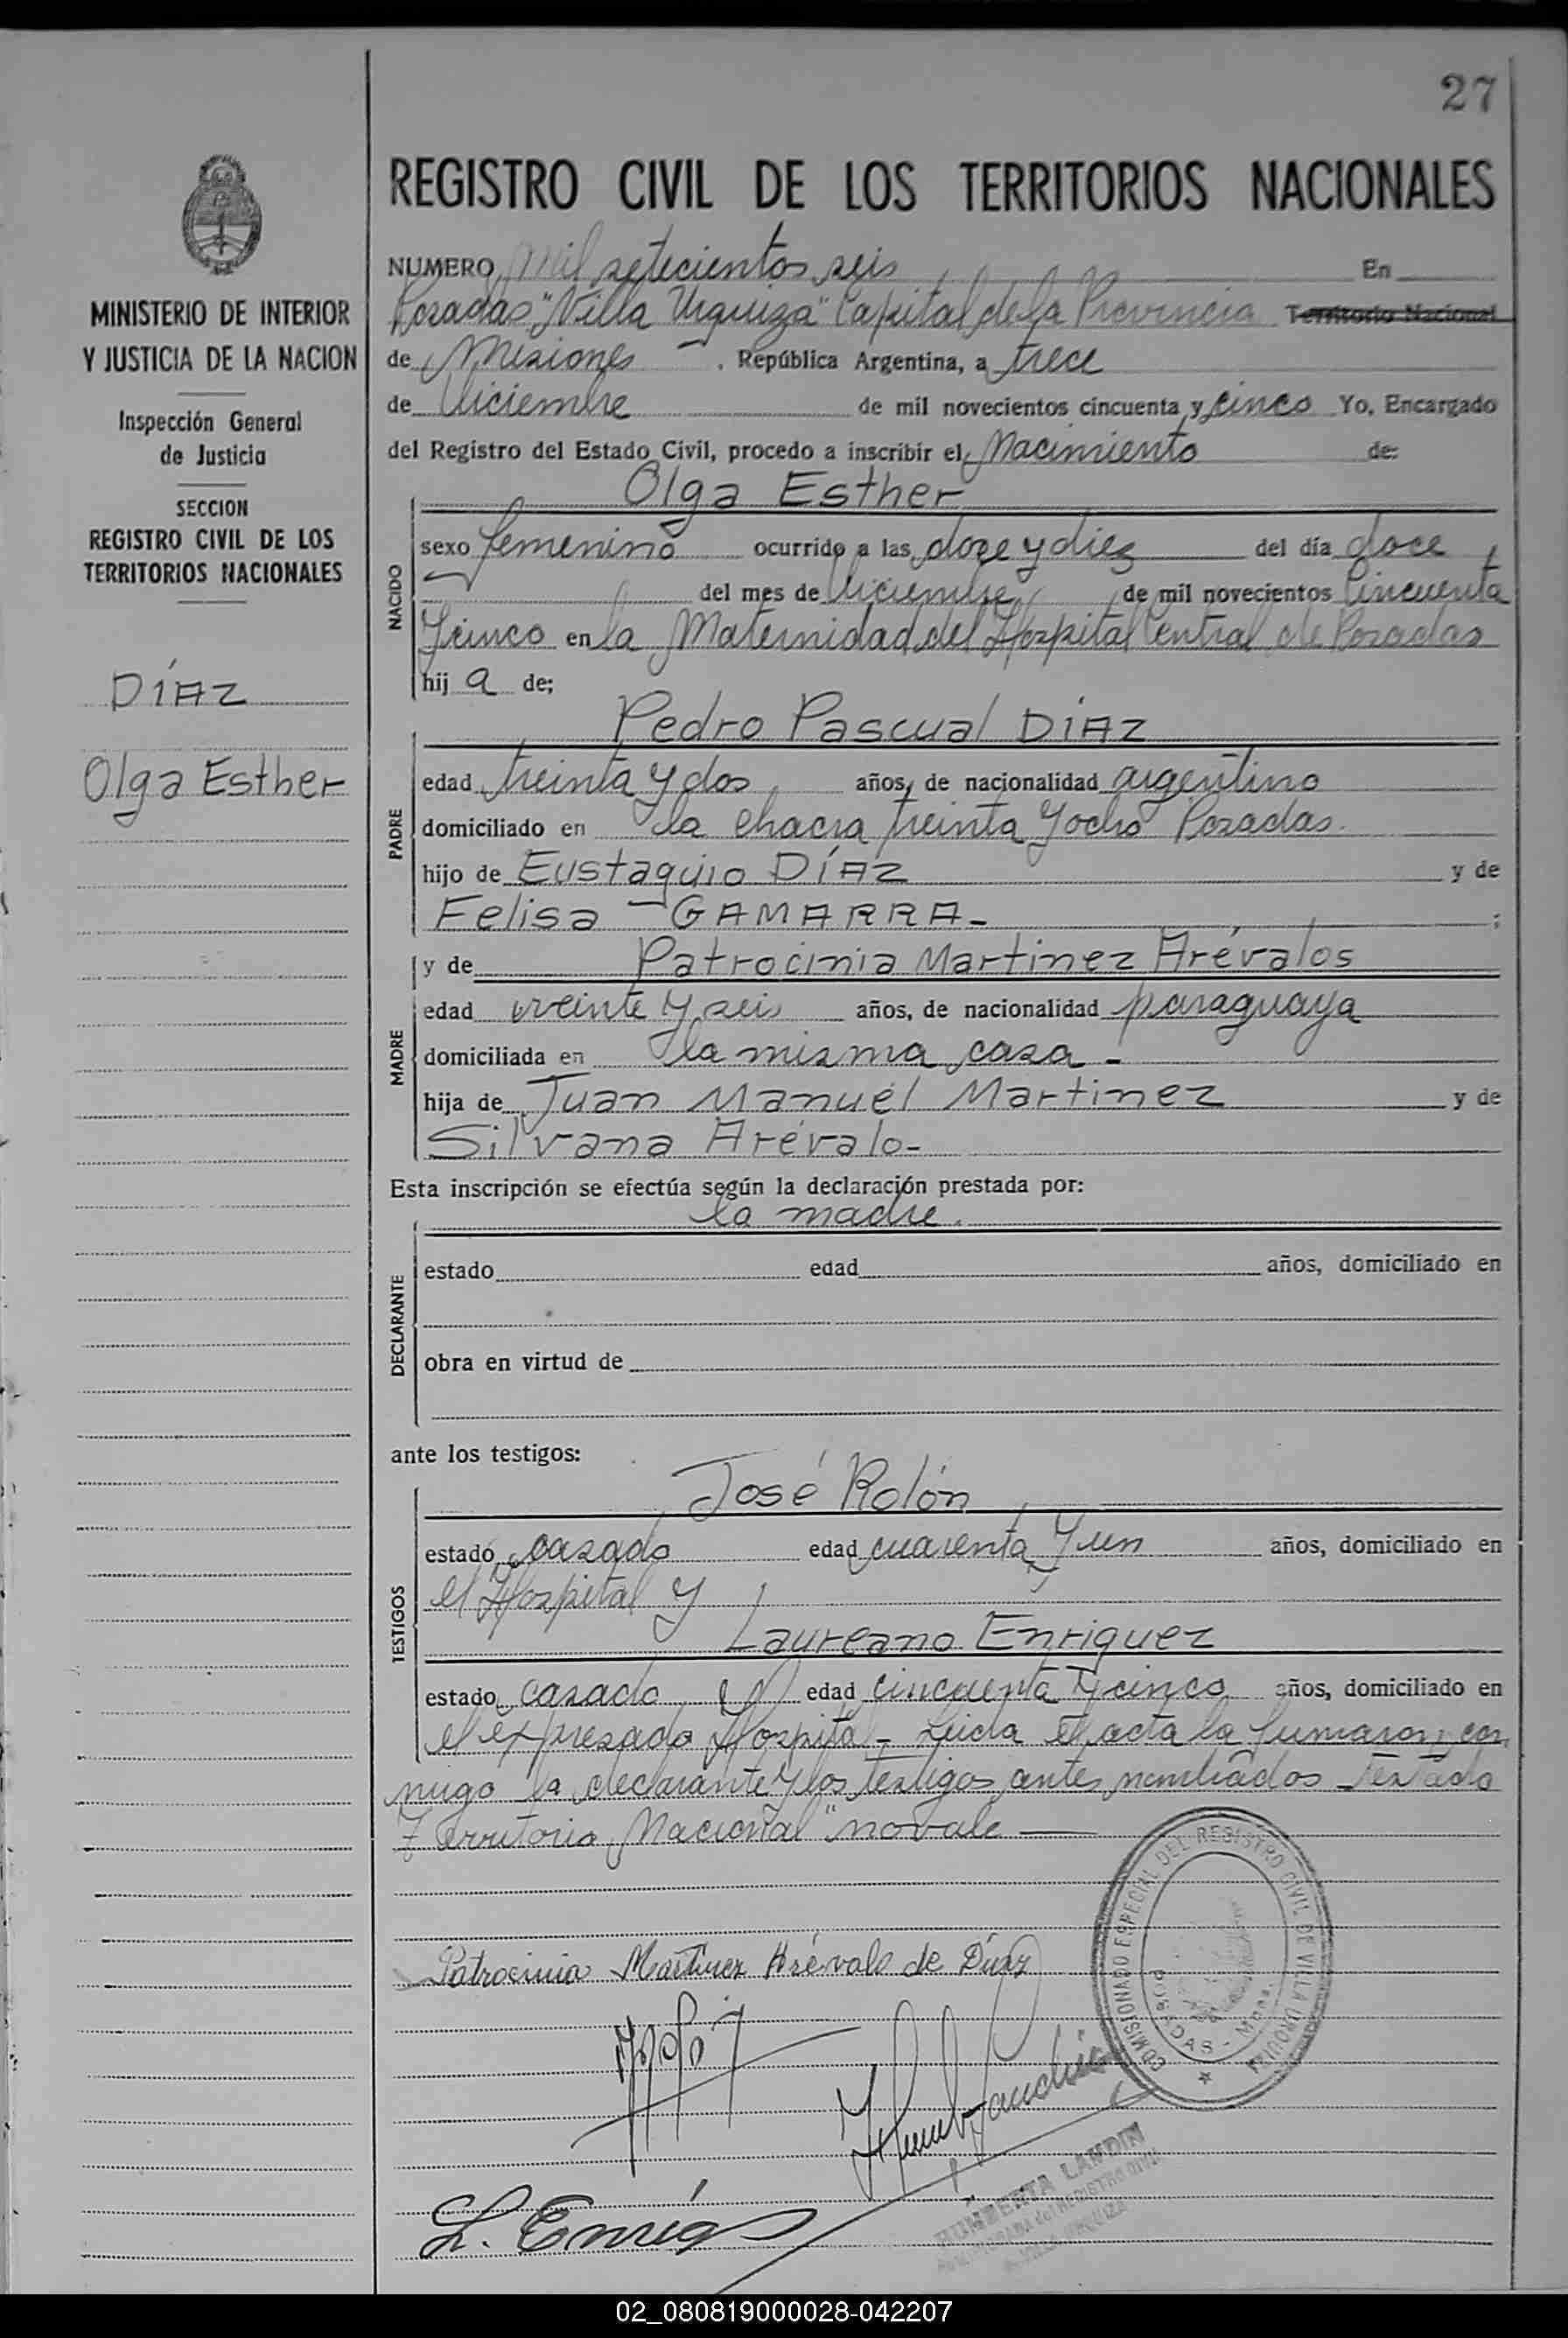 27
REGISTRO CIVIL DE LOS TERRITORIOS NACIONALES
MINISTERIO DE INTERIOR
Y JUSTICIA DE LA NACION
Inspección General
de Justicia
SECCION
REGISTRO CIVIL DE LOS
TERRITORIOS NACIONALES
DÍAZ
Olga Esther
NUMERO Mil setecientos seis En
Posadas "Villa Urquiza" Capital de la Provincia Territorio Nacional
de Misiones . República Argentina, a trece
de Diciembre de mil novecientos cincuenta y cinco Yo, Encargado
del Registro del Estado Civil, procedo a inscribir el Nacimiento de:
Olga Esther
NACIDO
sexo femenino ocurrido a las doce y diez del día doce
del mes de Diciembre de mil novecientos Cincuenta
y cinco en la Maternidad del Hospital Central de Posadas
hij a de;
Pedro Pascual DÍAZ
PADRE
edad treinta y dos años, de nacionalidad argentino
domiciliado en la chacra treinta y ocho Posadas.
hijo de Eustaquio DÍAZ y de
Felisa - GAMARRA - ;
y de Patrocinia Martinez Arévalos
MADRE
edad veinte y seis años, de nacionalidad paraguaya
domiciliada en la misma casa -
hija de Juan Manuel Martinez y de
Silvana Arévalo -
Esta inscripción se efectúa según la declaración prestada por:
la madre.
DECLARANTE
estado edad años, domiciliado en
obra en virtud de
ante los testigos:
José Rolón
TESTIGOS
estado casado edad cuarenta y un años, domiciliado en
el Hospital y
Laureano Enriquez
estado casado edad cincuenta y cinco años, domiciliado en
el expresado Hospital - Leida el acta la firmaron con
migo la declarante y los testigos antes nombrados Testado
"Territorio Nacional" no vale
Patrocinia Martinez Arévalo de Díaz
COMISIONADO ESPECIAL DEL REGISTRO CIVIL DE VILLA URQUIZA
POSADAS - Mnes.
L. Enríq
LANDIN
02_080819000028-042207